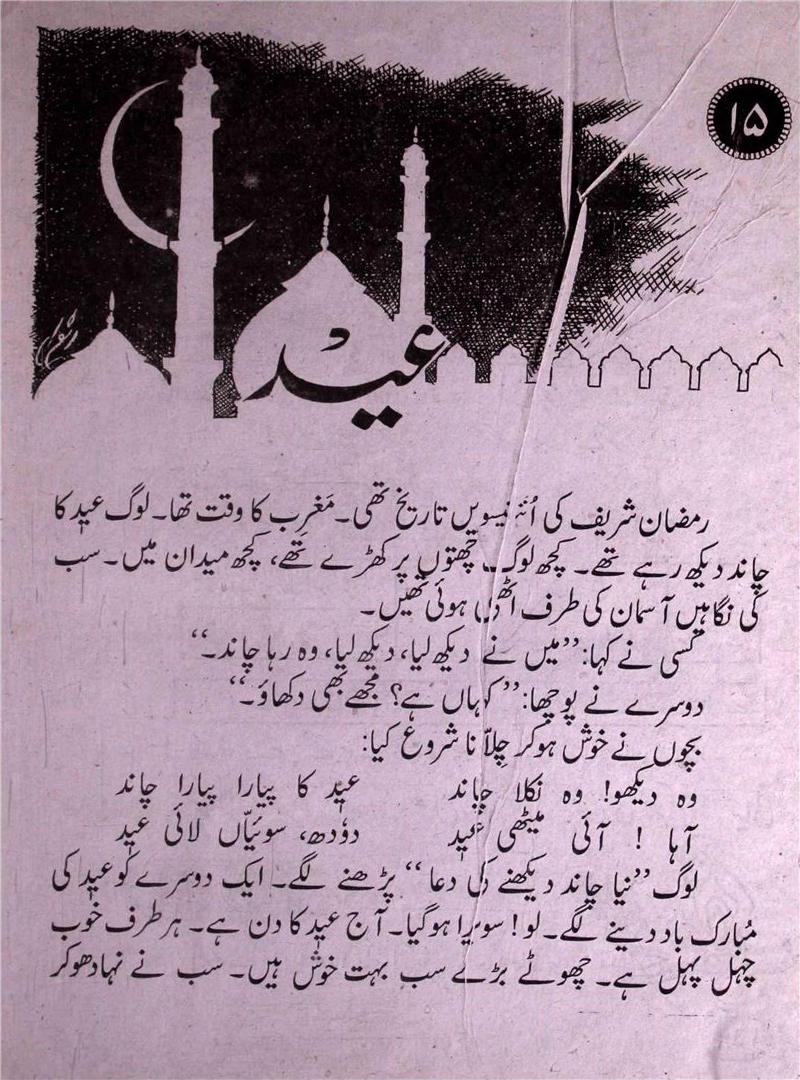 ۱۵
عید
رمضان شریف کی اُنتیسویں تاریخ تھی۔ مَغرِب کا وقت تھا۔ لوگ عید کا
چاند دیکھ رہے تھے۔ کچھ لوگ چھتوں پر کھڑے تھے، کچھ میدان میں۔ سب
کی نگاہیں آسمان کی طرف اٹھی ہوئی تھیں۔
کسی نے کہا: ”میں نے دیکھ لیا، دیکھ لیا، وہ رہا چاند۔“
دوسرے نے پوچھا: ”کہاں ہے؟ مجھے بھی دکھاؤ۔“
بچوں نے خوش ہوکر چِلاّنا شروع کیا:
وہ دیکھو! وہ نکلا چاند عید کا پیارا پیارا چاند
آہا ! آئی میٹھی عید دوٗدھ، سوئیّاں لائی عید
لوگ ”نیا چاند دیکھنے کی دعا“ پڑھنے لگے۔ ایک دوسرے کو عید کی
مُبارک باد دینے لگے۔ لو! سویرا ہوگیا۔ آج عید کا دن ہے۔ ہر طرف خوٗب
چہل پہل ہے۔ چھوٹے بڑے سب بہت خوش ہیں۔ سب نے نہا دھو کر